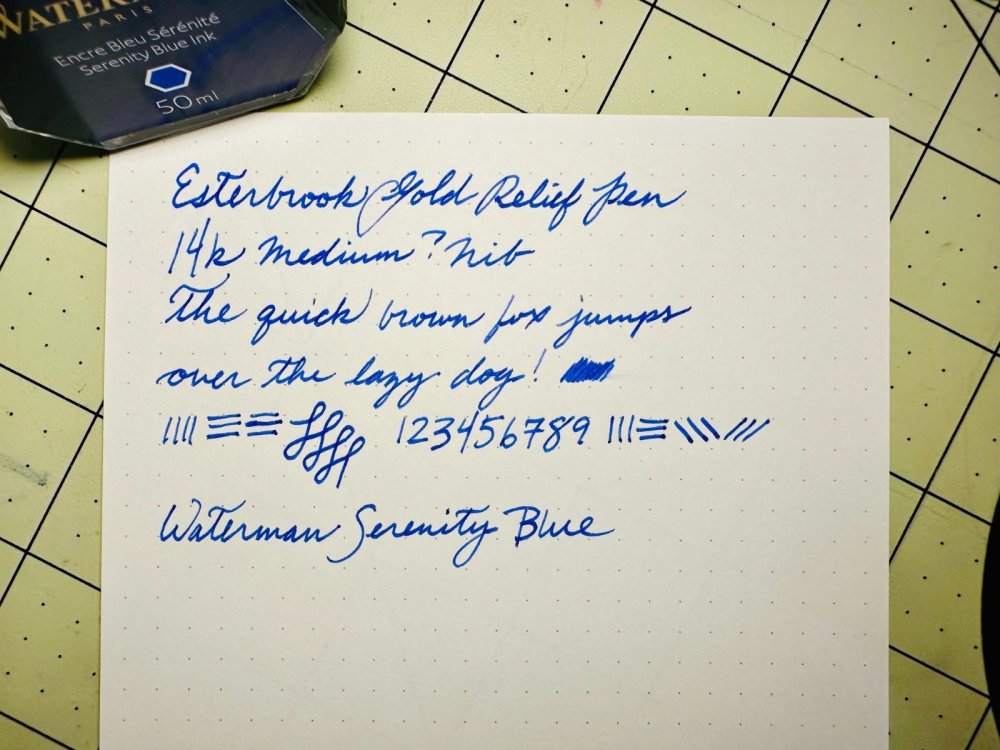 WATER
PARIS
Encre Bleu Sérénité
Serenity Blue Ink
50ml
Esterbrook Gold Relief Pen
14k Medium? Nib
The quick brown fox jumps
over the lazy dog!
123456789
Waterman Serenity Blue